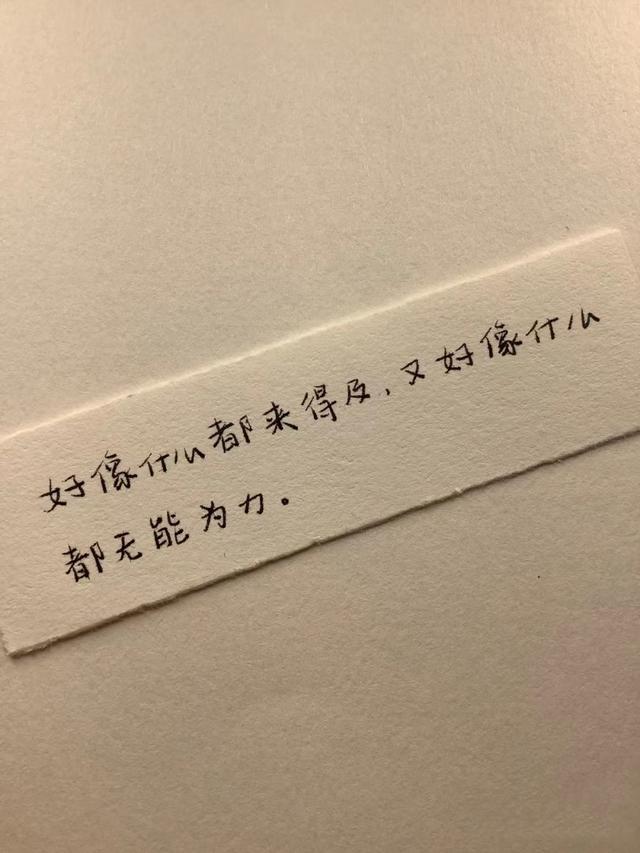 好像什么都来得及,又好像什么
都无能为力。